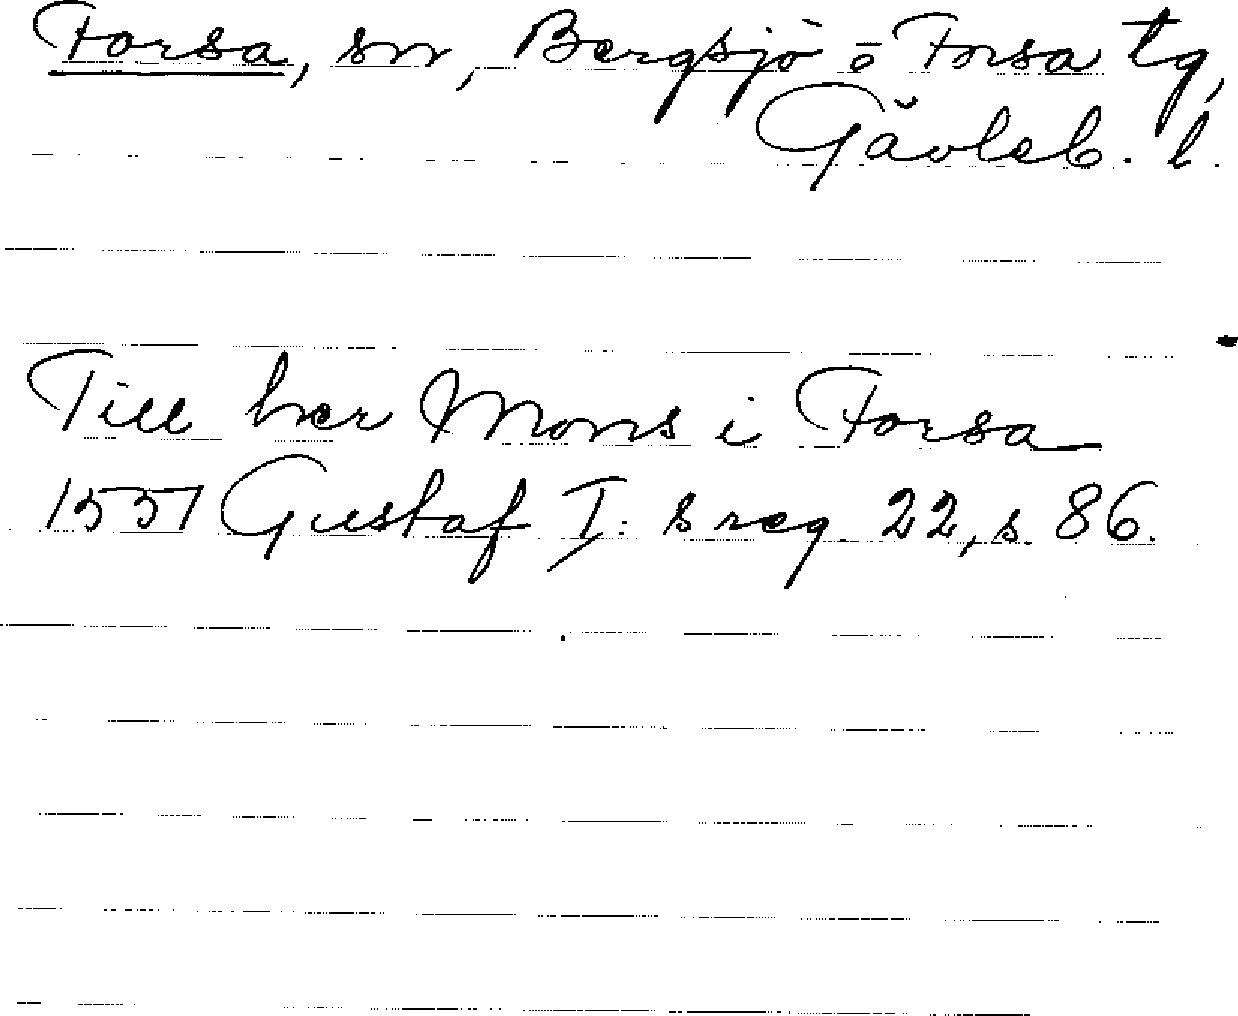 Forsa, sn, Bergsjö o Forsa tg,
Gävleb. l.
Till her Mons i Forsa
1551 Gustaf I:s reg. 22, s. 86.